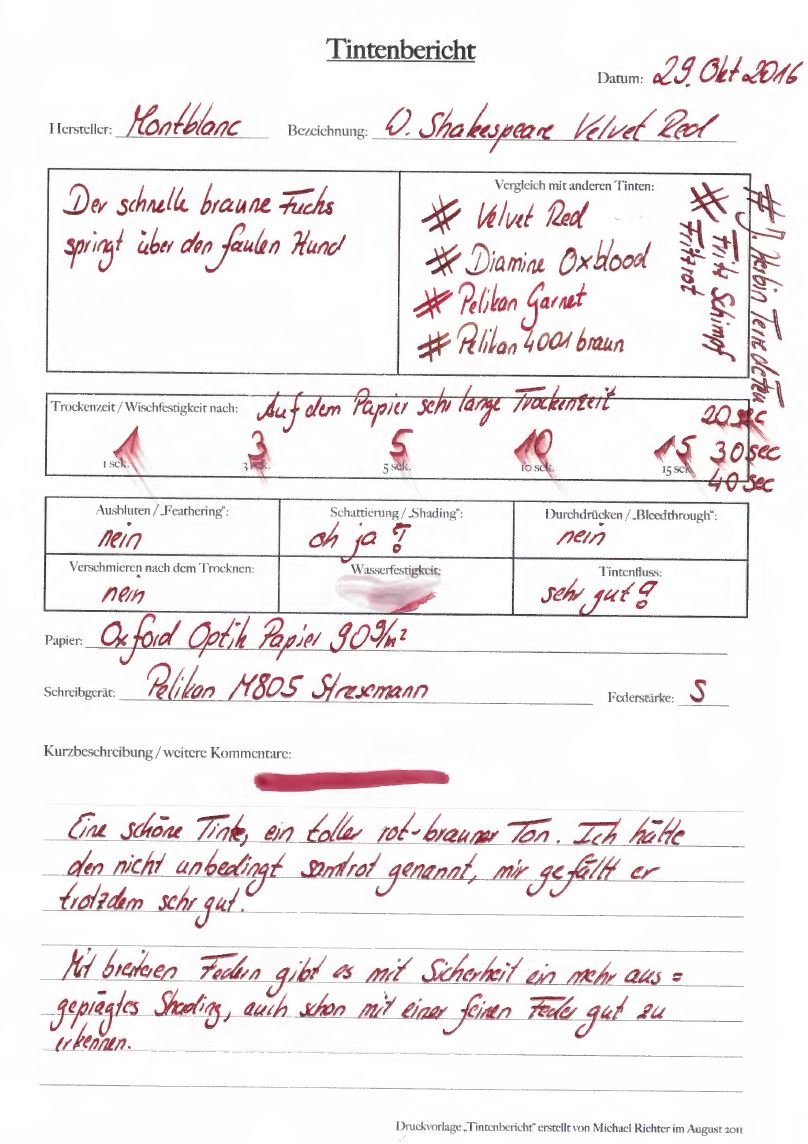 Tintenbericht
Datum: 29. Okt 2016
Hersteller: Montblanc Bezeichnung: W. Shakespeare Velvet Red
Der schnelle braune Fuchs
springt über den faulen Hund
Vergleich mit anderen Tinten:
# Velvet Red
# Diamine Oxblood
# Pelikan Garnet
# Pelikan 4001 braun
# Fritz Schimpf
Fritzrot
# J. Herbin Terre de Feu
Trockenzeit / Wischfestigkeit nach: Auf dem Papier sehr lange Trockenzeit
1 3 5 10 15
1 sek. 3 sek. 5 sek. 10 sek. 15 sek.
20 sec
30 sec
40 sec
Ausbluten / „Feathering": Schattierung / „Shading": Durchdrücken / „Bleedthrough":
nein oh ja ! nein
Verschmieren nach dem Trocknen: Wasserfestigkeit: Tintenfluss:
nein sehr gut !
Papier: Oxford Optik Papier 90 g/m²
Schreibgerät: Pelikan M805 Stresemann Federstärke: S
Kurzbeschreibung / weitere Kommentare:
Eine schöne Tinte, ein toller rot-brauner Ton. Ich hätte
den nicht unbedingt samtrot genannt, mir gefällt er
trotzdem sehr gut.
Mit breiteren Federn gibt es mit Sicherheit ein mehr aus=
geprägtes Shading, auch schon mit einer feinen Feder gut zu
erkennen.
Druckvorlage „Tintenbericht" erstellt von Michael Richter im August 2011